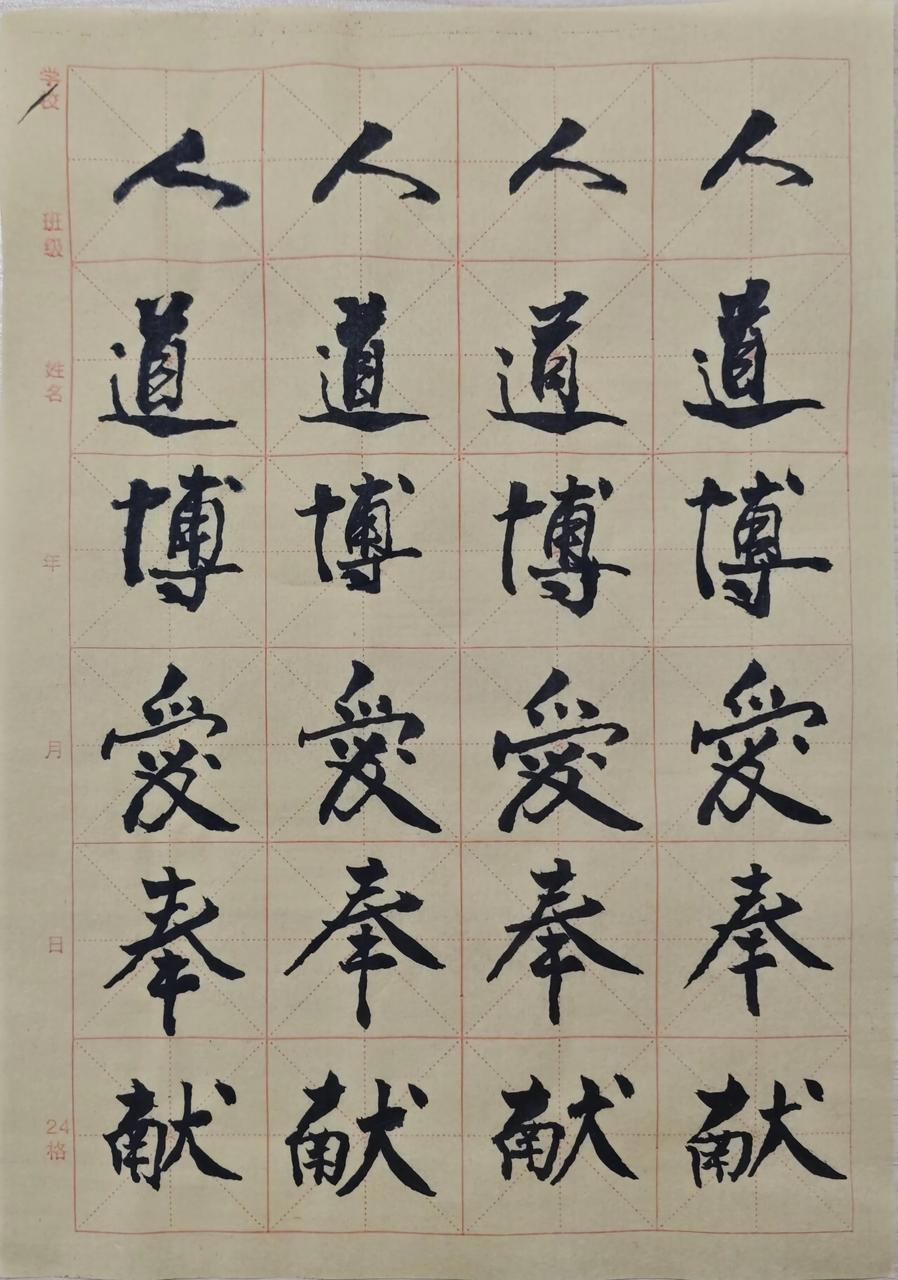 学校
班级
姓名
年
月
日
24格
人人人人
道道道道
博博博博
愛愛愛愛
奉奉奉奉
献献献献